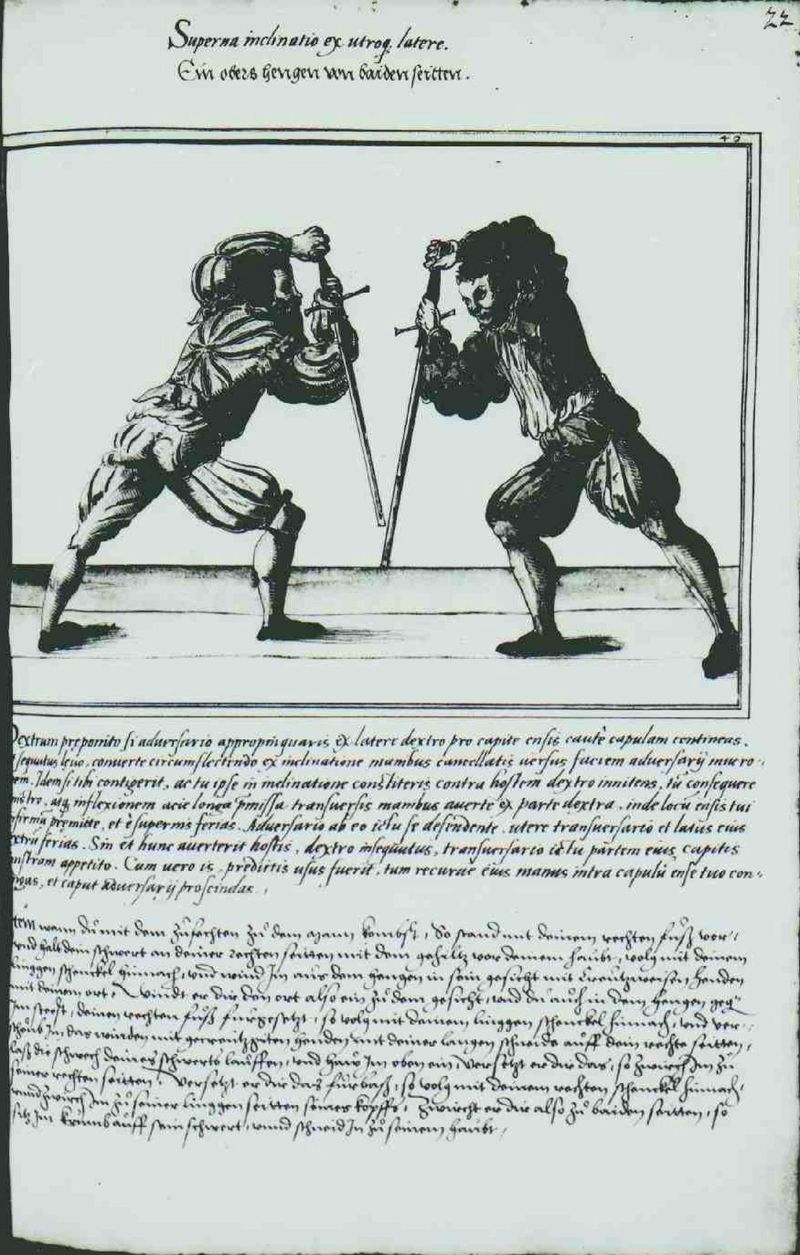 22
Superna inclinatio ex utroq. latere.
Ein obers hengen von baiden seitten.
49
Dextrum preponito si adversario appropinquaris et ex latere dextro pro capite ensis caute capulum contineas.
sequutus levo, converte circumflectendo ex inclinatione manibus cancellatis versus faciem adversarij mucro-
nem. Idem si tibi contigerit, ac tu ipse in inclinatione constiteris contra hostem dextro innitens, tu consequere
atq. inflexionem acie longa pmissa transversis manibus averte ex parte dextra, inde locu ensis tui
premitte, et e supernis ferias. Adversario ab eo ictu se defendente, utere transversario et latus eius
ferias. Sin et hunc averterit hostis, dextro insequutus, transversario ictu partem eius capitis
appetito. Cum vero is, predictis usus fuerit, tum recurve eius manus intra capulu ense tuo con-
et caput adversarij proscindas.
wann du mit dem zufechten zu dem mann kombst, So stand mit deinem rechten fuß vor,
und halt dein schwert an deiner rechten seitten mit dem gehiltz vor deinem haubt, volg mit deinem
linggen schenckel hinnach, und wind Im aus dem hengen in sein gesicht mit Creutzweisen henden
mit deinem ort, Windt er dir den ort also ein zu dem gesicht, und du auch in dem hengen geg
Im steest, deinen rechten fuß furgesetzt, so volg mit deinem linggen schenckel hinnach, und ver-
Im das winden mit gecreutzgten henden mit deiner langen schneid auff dein rechte seitten,
laß die schwech deines schwerts lauffen, und haw Im oben ein, Versetzt er dir das, so zwirch Im zu
seiner rechten seitten, Versetzt er dir das furbaß, so volg mit deinem rechten schenckel hinnach,
unnd zwirch Im zu seiner linggen seitten seines kopffs, Zwircht er dir also zu baiden seitten, so
Im krumb auff sein schwert, unnd schneid In zu seinem haubt,